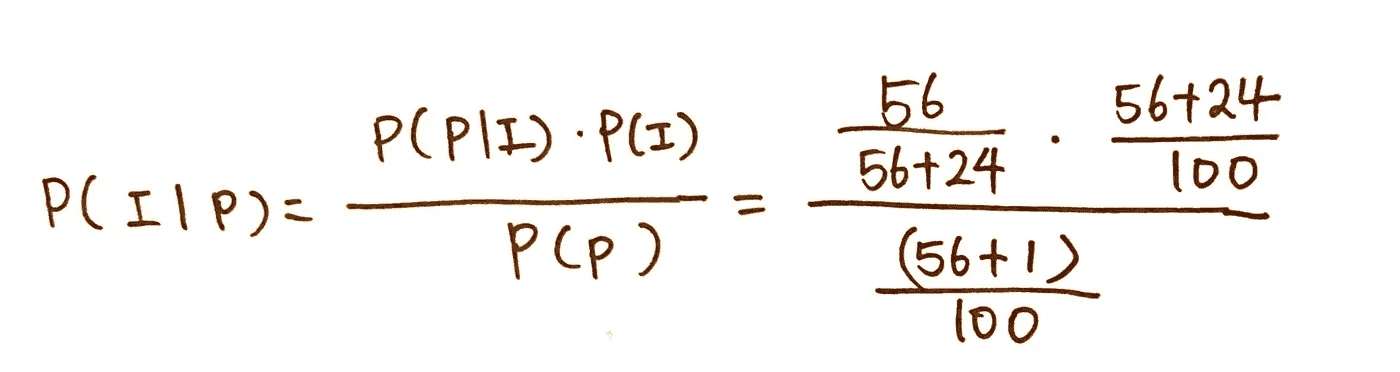 P(I|P) = P(P|I)·P(I) / P(P) = (56 / 56+24 · 56+24 / 100) / ((56+1) / 100)